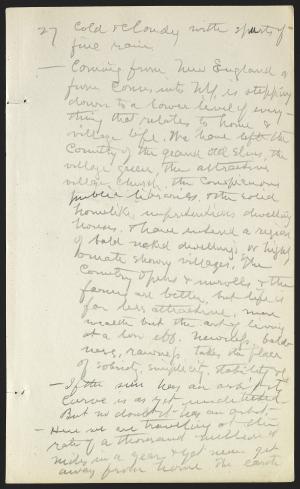 27 Cold & cloudy with spurts of
fine rain.
— Coming from New England or
from Conn. into N.Y. is stepping
down to a lower level of every-
thing that relates to home &
village life. We have left the
Country of the grand old Elms, the
village green, the attractive
village Church, the conspicuous
public libraries, & the solid
homelike, unpretentious dwelling
houses. & have entered a region
of bald naked dwellings, or high
ornate showy villages. The
Country opens & unrolls & the
farms are better, but life is
far less attractive, more
wealth but the art of living
at a low ebb. Newness, bald-
ness, rawness, takes the place
of sobriety, simplicity, stability &
— If the sun has an orbit, its
curve is as yet undetected
But no doubt it has an orbit —
— Here we are travelling at the
rate of a thousand million of
miles in a year & yet never get
away from home. The earth